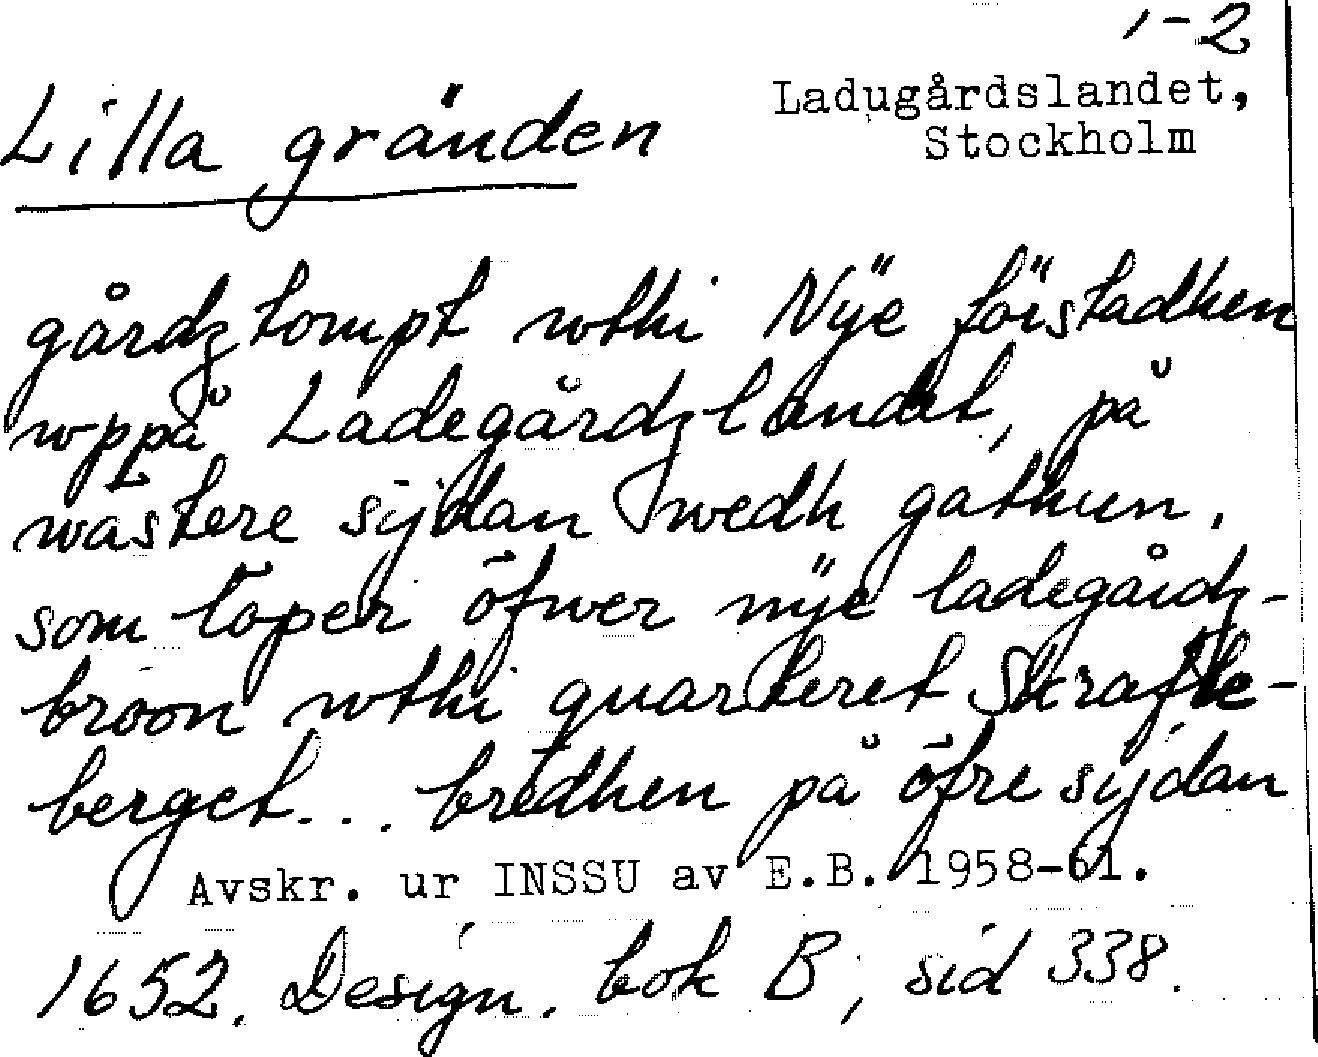 1-2
Ladugårdslandet,
Stockholm
Lilla gränden
gårdztompt wthi Nÿe förstadhen
wppå Ladegårdzlandet, på
wästere sijdan wedh gathun,
som löper öfwer nÿe ladegårdz-
broon wthi quarteret Skrafle-
berget... bredhen på öfre sijdan
Avskr. ur INSSU av E.B. 1958-61.
1652. Design. bok B, sid 338.